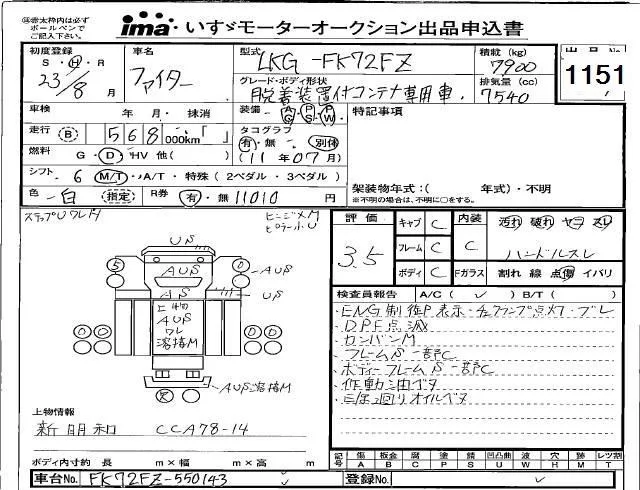 ㊟赤太枠内は必ず
ボールペンで
ご記入下さい。
ima いすゞモーターオークション出品申込書
初度登録 S・H・R 23/8 月
車名 ファイター
型式 LKG-FK72FZ
積載 (kg) 7900
出品No 1151
グレード・ボディ形状
脱着装置付コンテナ専用車
排気量 (cc) 7540
車検 年 月・抹消
装備 AG PS PW
特記事項
走行 B 568 000km「 」
タコグラフ 有・無 別体
燃料 G・D・HV 他( )
(11年07月)
シフト 6 M/T・A/T・特殊(2ペダル・3ペダル)
色 白 指定
R券 有・無 11010 円
架装物年式:( 年式)・不明
※不明の場合は、不明に○をする。
ステップUワレH
ヒンジ×M
ピラー小U
US
5 AUS 0 AUS
AS US
AUS
ワレ
溶接M
0 0
AUS溶接M
評価 3.5
キャブ C
フレーム C
ボディ C
内装 C
Fガラス
汚れ 破れ ヤニ スレ
ハンドルスレ
割れ 線 点傷 イバリ
検査員報告 A/C( ✓ ) B/T( )
・ENG制御P表示・チェックランプ点灯・ブレ
・DPF点滅
・カンバンM
・フレームS一部C
・ボディーフレームS一部C
・作動油ベタ
・足廻りオイルベタ
上物情報
新明和 CCA78-14
ボディ内寸約 長 m×幅 m×高 m
記号 傷A 板金B 腐C 塗P 錆S 凹凸曲U 波W 穴H 跡M レツ割T
車台No. FK72FZ-550143
登録No.